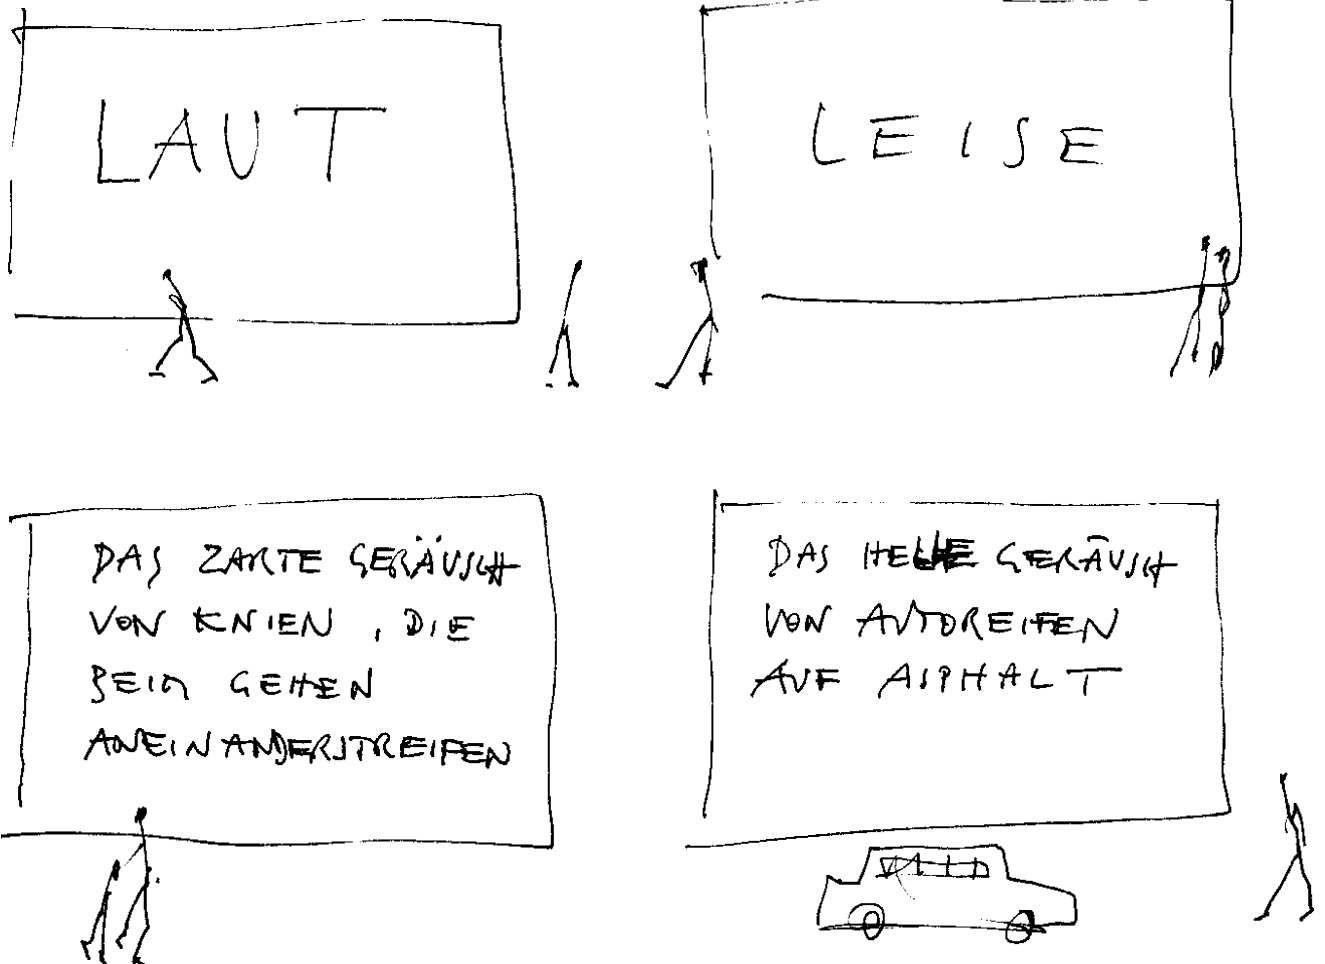 LAUT
LEISE
DAS ZARTE GERÄUSCH
VON KNIEN, DIE
BEIM GEHEN
ANEINANDERSTREIFEN
DAS HELLE GERÄUSCH
VON AUTOREIFEN
AUF ASPHALT